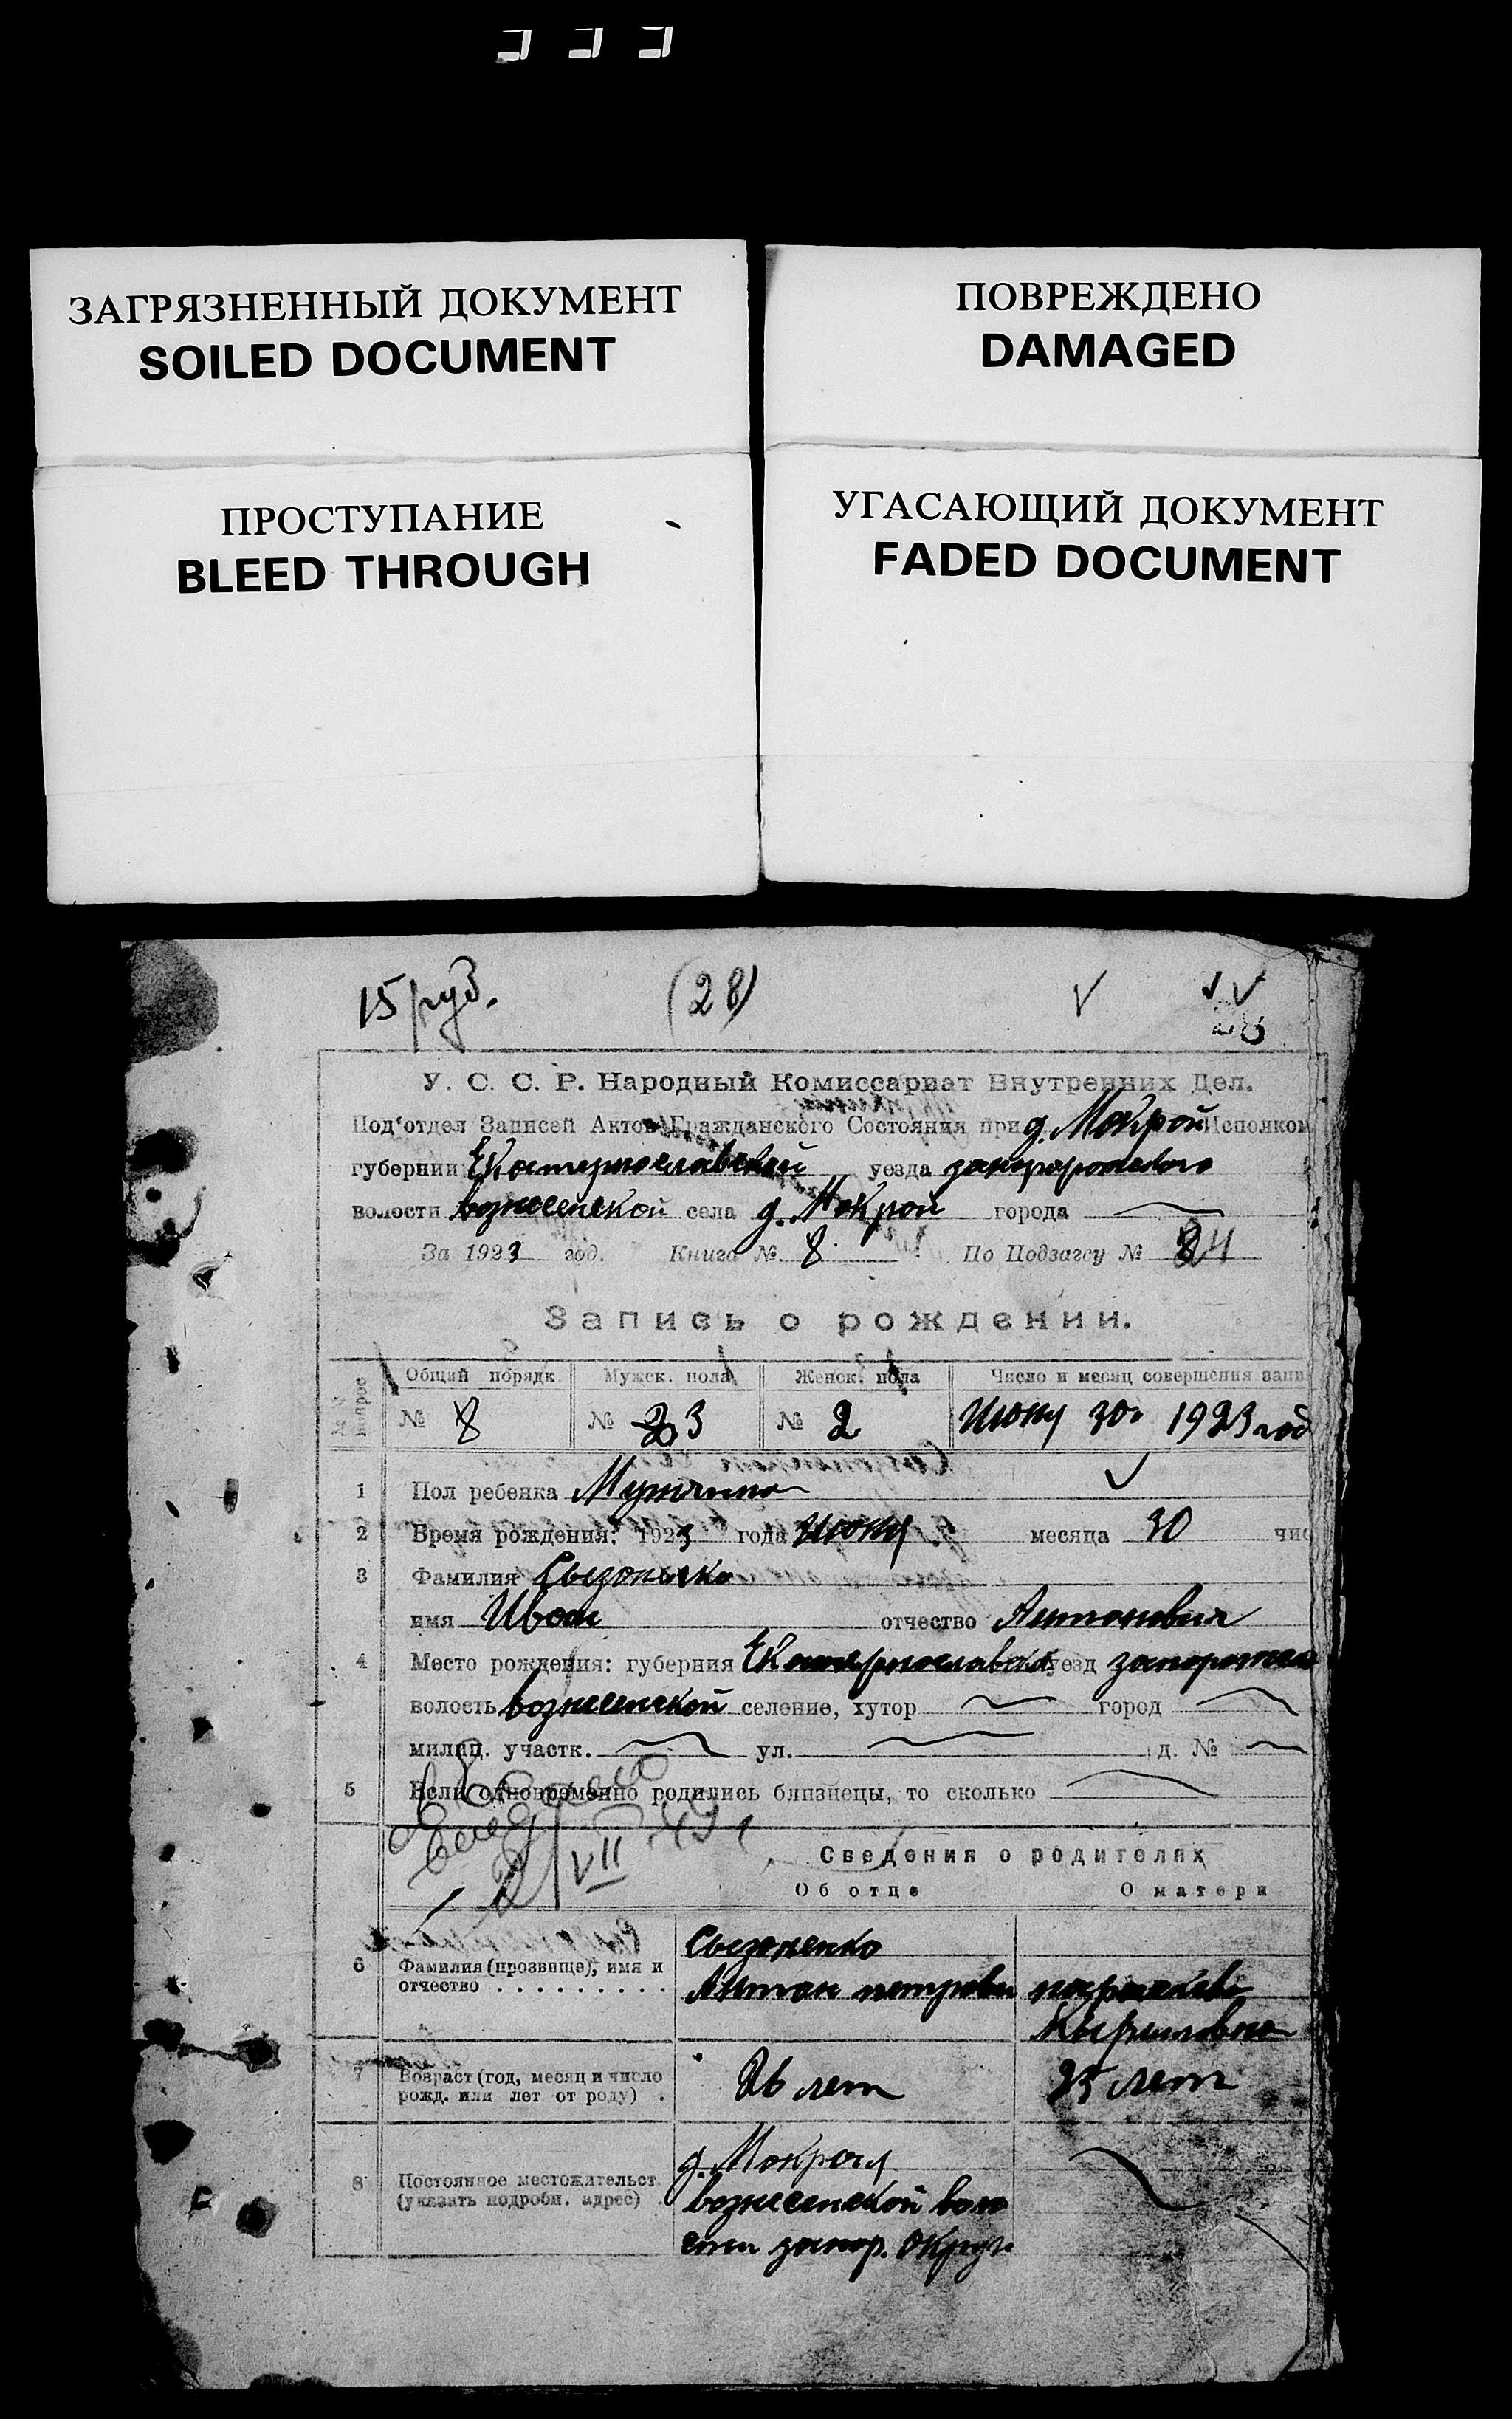 ЗАГРЯЗНЕННЫЙ ДОКУМЕНТ
SOILED DOCUMENT
ПОВРЕЖДЕНО
DAMAGED
ПРОСТУПАНИЕ
BLEED THROUGH
УГАСАЮЩИЙ ДОКУМЕНТ
FADED DOCUMENT
15 руб. (28)
У. С. С. Р. Народный Комиссариат Внутренних Дел.
Под'отдел Записей Актов Гражданского Состояния при д. Мокрой Исполком
губернии Екатернославской уезда
волости вознесенской села д. Мокрой города
За 1923 год. Книга № 8 По Подзагсу № 84
Запись о рождении.
Общий порядк. Мужск. пола Женск. пола Число и месяц совершения запи
№ 8 № 3 № 2 Июня 30 1923 год
1 Пол ребенка Мужчина
2 Время рождения: 1923 года Июня месяца 30 чис
3 Фамилия
имя Иван отчество Антонович
4 Место рождения: губерния уезд
волость вознесенской селение, хутор город
милиц. участк. ул. д. №
5 Если одновременно родились близнецы, то сколько
Сведения о родителях
Об отце О матери
6 Фамилия (прозвище), имя и
отчество
Антон петрови
7 Возраст (год, месяц и число
рожд. или лет от роду)
26 лет 25 лет
8 Постоянное местожительст.
(указать подробн. адрес)
д. Мокрой
вознесенской воло
сти запор. округи